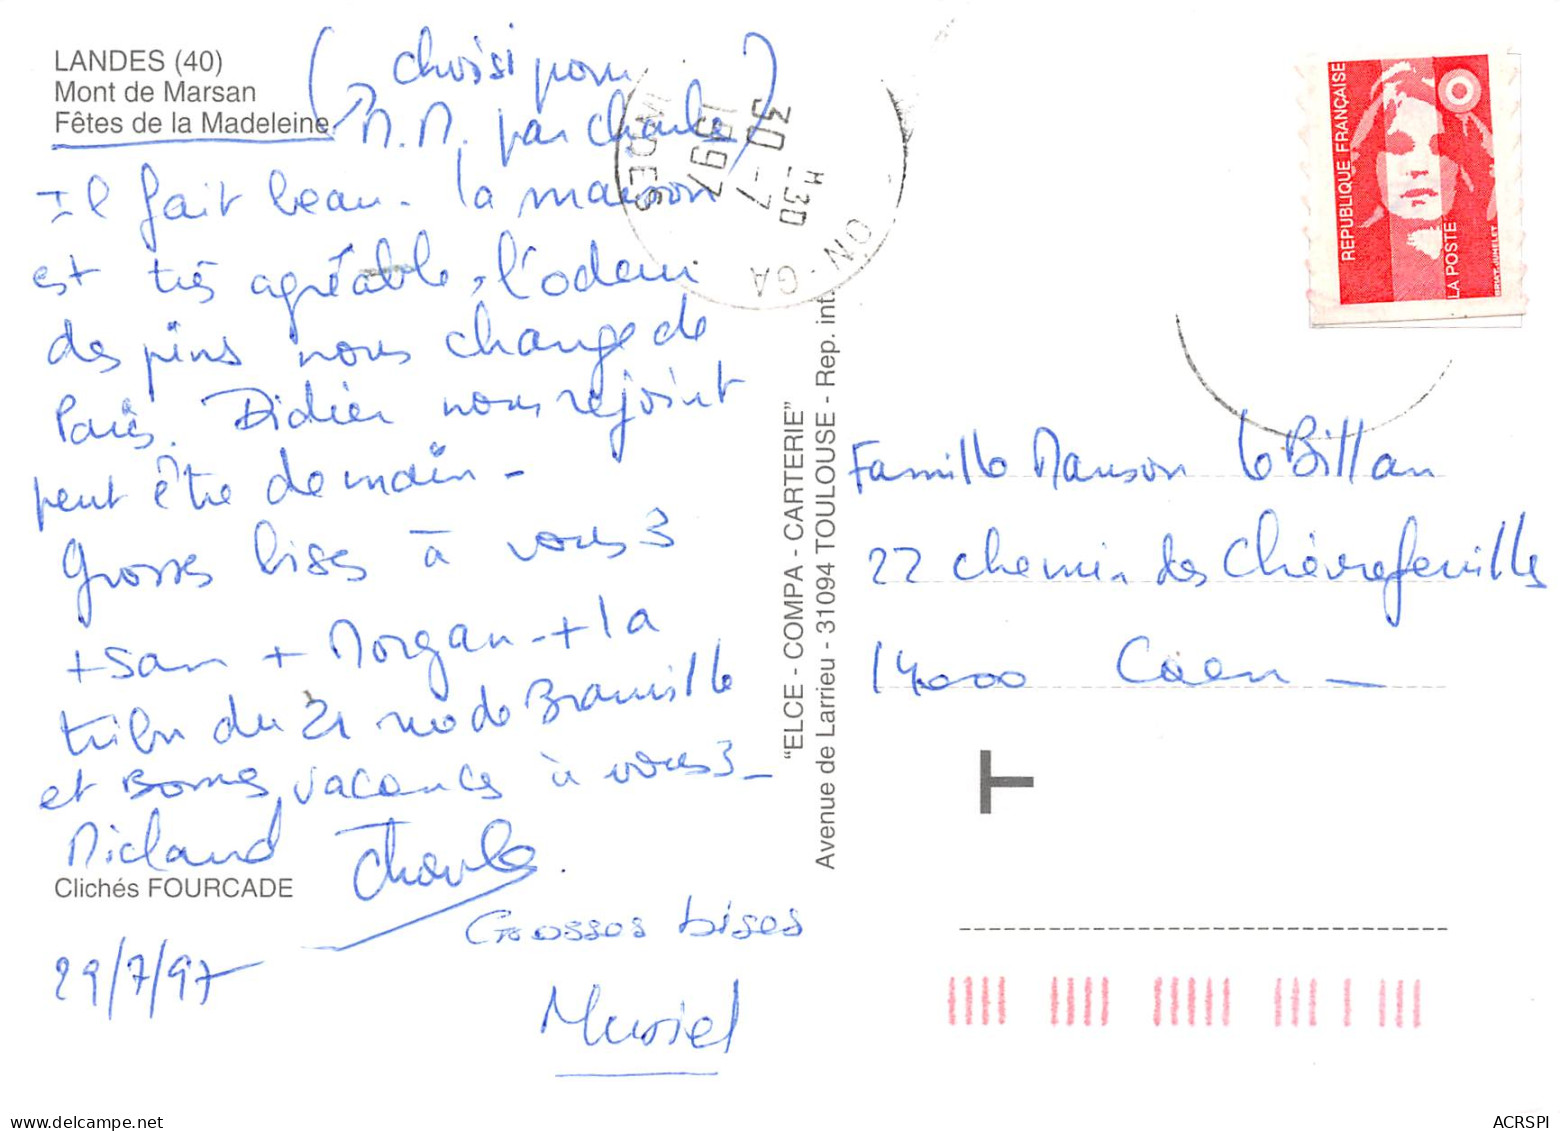 LANDES (40)
Mont de Marsan
Fêtes de la Madeleine
(choisi pour
M.M. par Charles)
Il fait beau - la maison
est très agréable, l'odeur
des pins nous change de
Paris. Didier nous rejoint
peut être demain -
Grosses bises à vous 3
+ Sam + Morgan + la
tribu du 21 rue de Branville
et Bonnes vacances à vous 3 -
Charles.
Clichés FOURCADE
Grosses bises
29/7/97
Muriel
"ELCE - COMPA - CARTERIE"
Avenue de Larrieu - 31094 TOULOUSE - Rep. int.
30 -7
1997
LANDES
ON-GA
REPUBLIQUE FRANÇAISE
LA POSTE
Famille Manson le Billan
22 chemin des Chèvrefeuilles
14000 Caen -
T
www.delcampe.net
ACRSPI